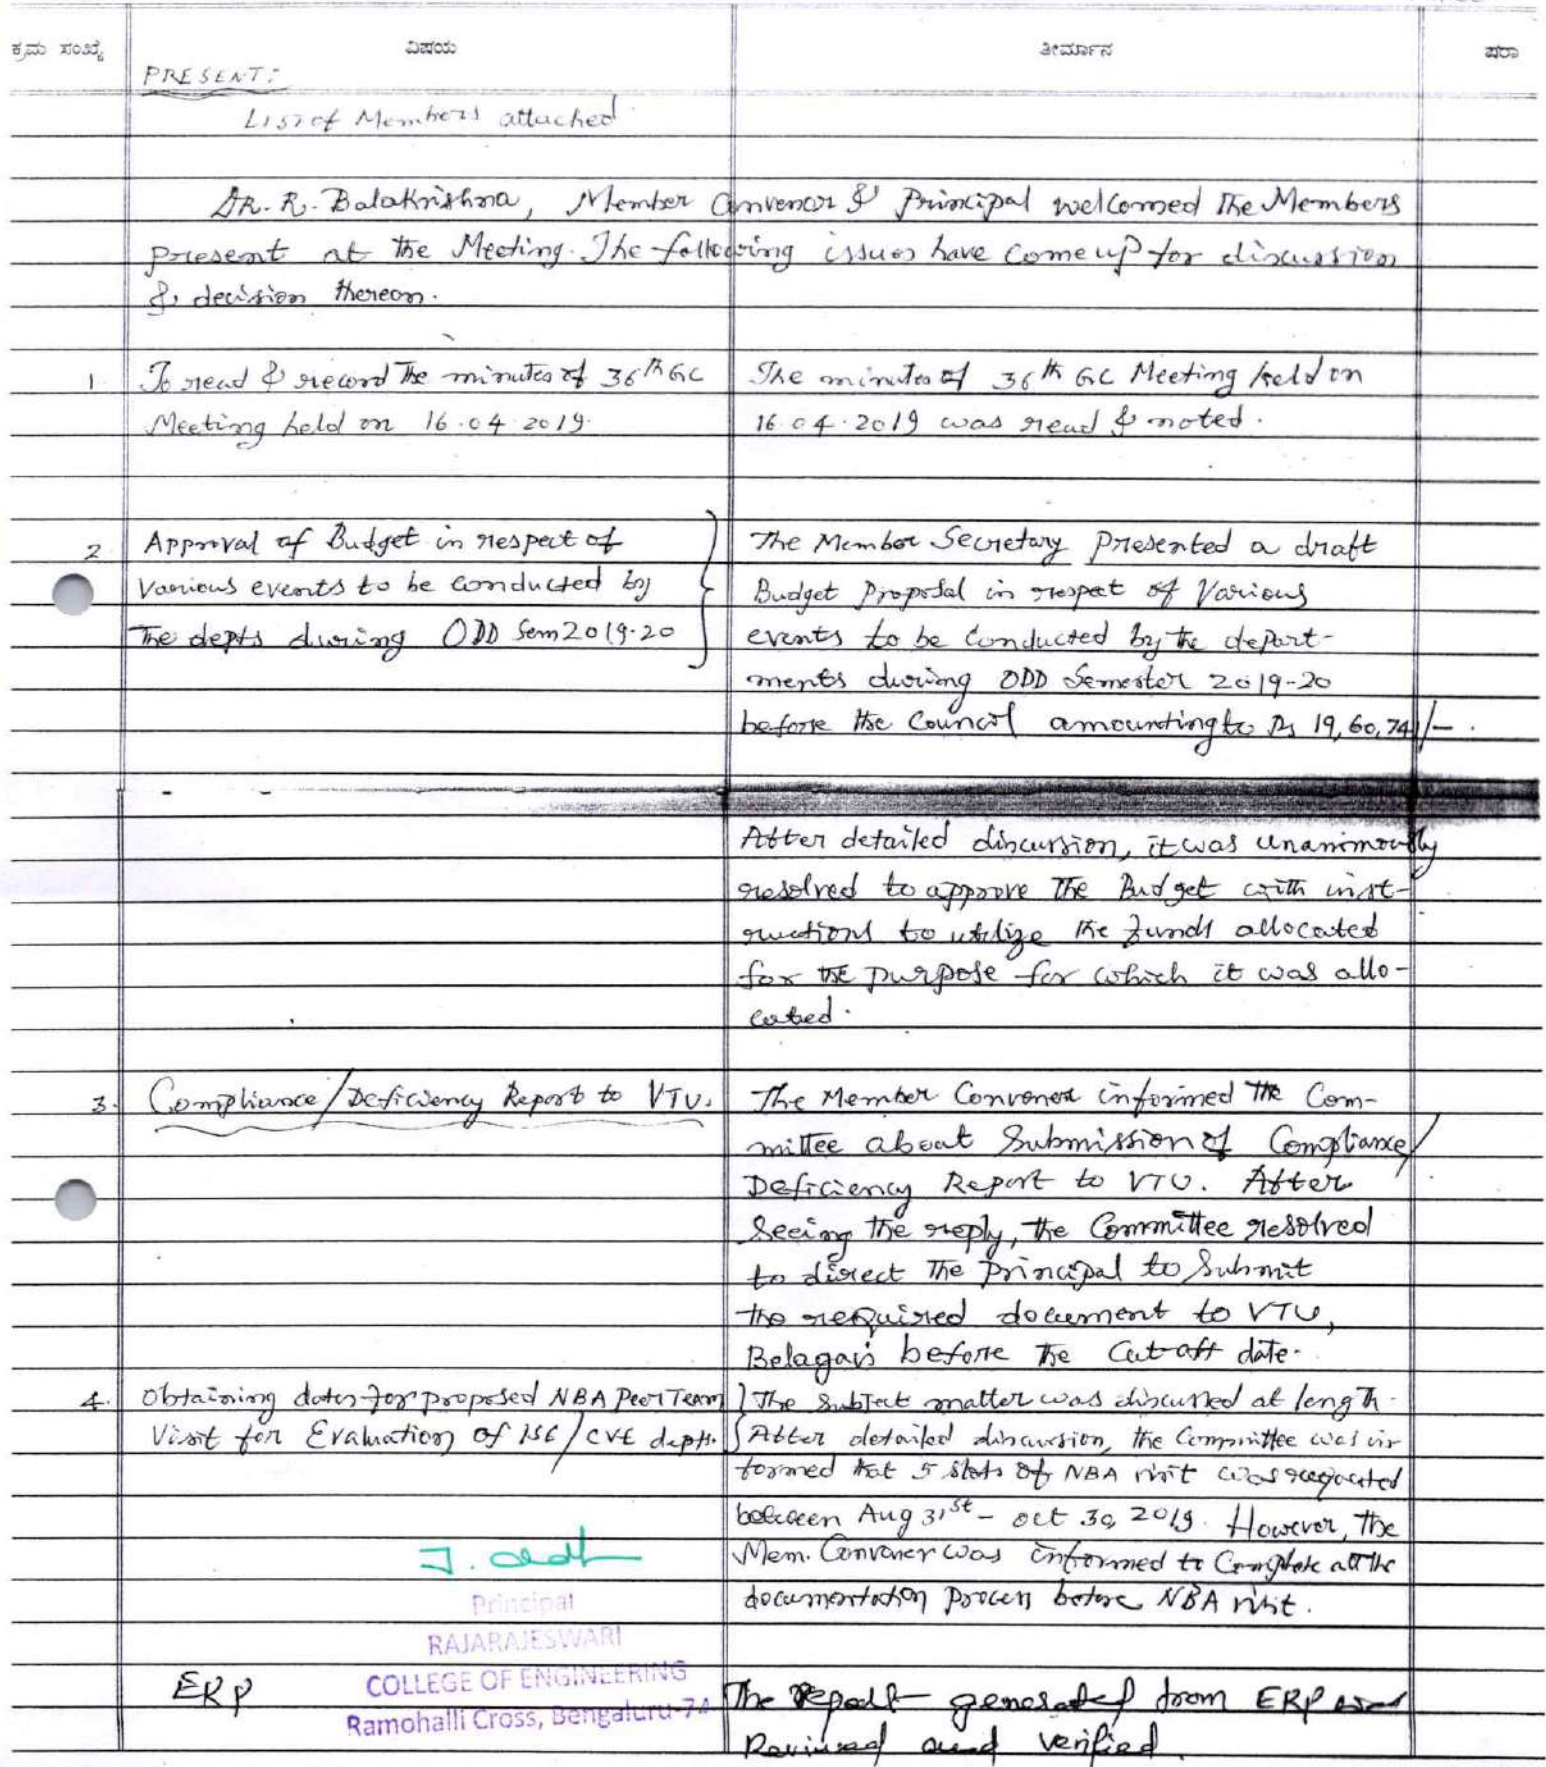 ಕ್ರಮ ಸಂಖ್ಯೆ ವಿಷಯ ತೀರ್ಮಾನ ಷರಾ
PRESENT:
List of Members attached
DR. R. Balakrishna, Member Convenor & Principal welcomed the Members
present at the Meeting. The following issues have come up for discussion
& decision thereon.
1 To read & record the minutes of 36th GC
Meeting held on 16.04.2019.
The minutes of 36th GC Meeting held on
16.04.2019 was read & noted.
2 Approval of Budget in respect of
various events to be conducted by
the depts during ODD Sem 2019-20
The Member Secretary presented a draft
Budget proposal in respect of various
events to be conducted by the depart-
ments during ODD Semester 2019-20
before the Council amounting to Rs 19,60,741/-.
After detailed discussion, it was unanimously
resolved to approve the Budget with inst-
ructions to utilize the funds allocated
for the purpose for which it was allo-
cated.
3. Compliance/Deficiency Report to VTU.
The Member Convenor informed the Com-
mittee about Submission of Compliance/
Deficiency Report to VTU. After
seeing the reply, the Committee resolved
to direct the principal to submit
the required document to VTU,
Belagavi before the cut-off date.
4. Obtaining dates for proposed NBA Peer Team
Visit for Evaluation of ISE/CVE depts.
The subject matter was discussed at length.
After detailed discussion, the Committee was in-
formed that 5 slots of NBA visit was requested
between Aug 31st - Oct 30, 2019. However, the
Mem. Convener was informed to Complete all the
documentation process before NBA visit.
Principal
RAJARAJESWARI
COLLEGE OF ENGINEERING
Ramohalli Cross, Bengaluru-74
ERP
The report generated from ERP was
Reviewed and verified.